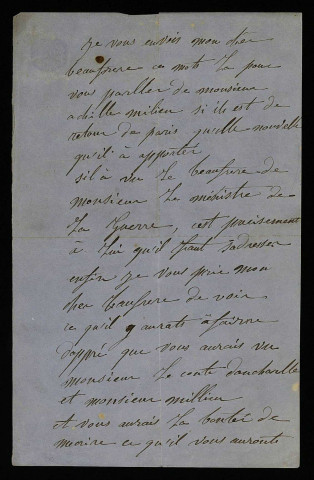 Je vous envois mon cher
beaufrere ces mots La pour
vous parller de monsieur
achille milien si il est de
retour de paris quelle nouvelle
qu'il à apporter
sil à vu Le beaufrere de
monsieur Le ministre de
La Guerre, cest précisement
à Lui qu'il faut sadresser
enfin Je vous prie mon
cher beaufrere de voir
ce qu'il y aurats à fairre
dappré que vous aurais vu
monsieur Le conte
et monsieur millien
et vous aurais La bonté de
mecrire ce qu'il vous auronts